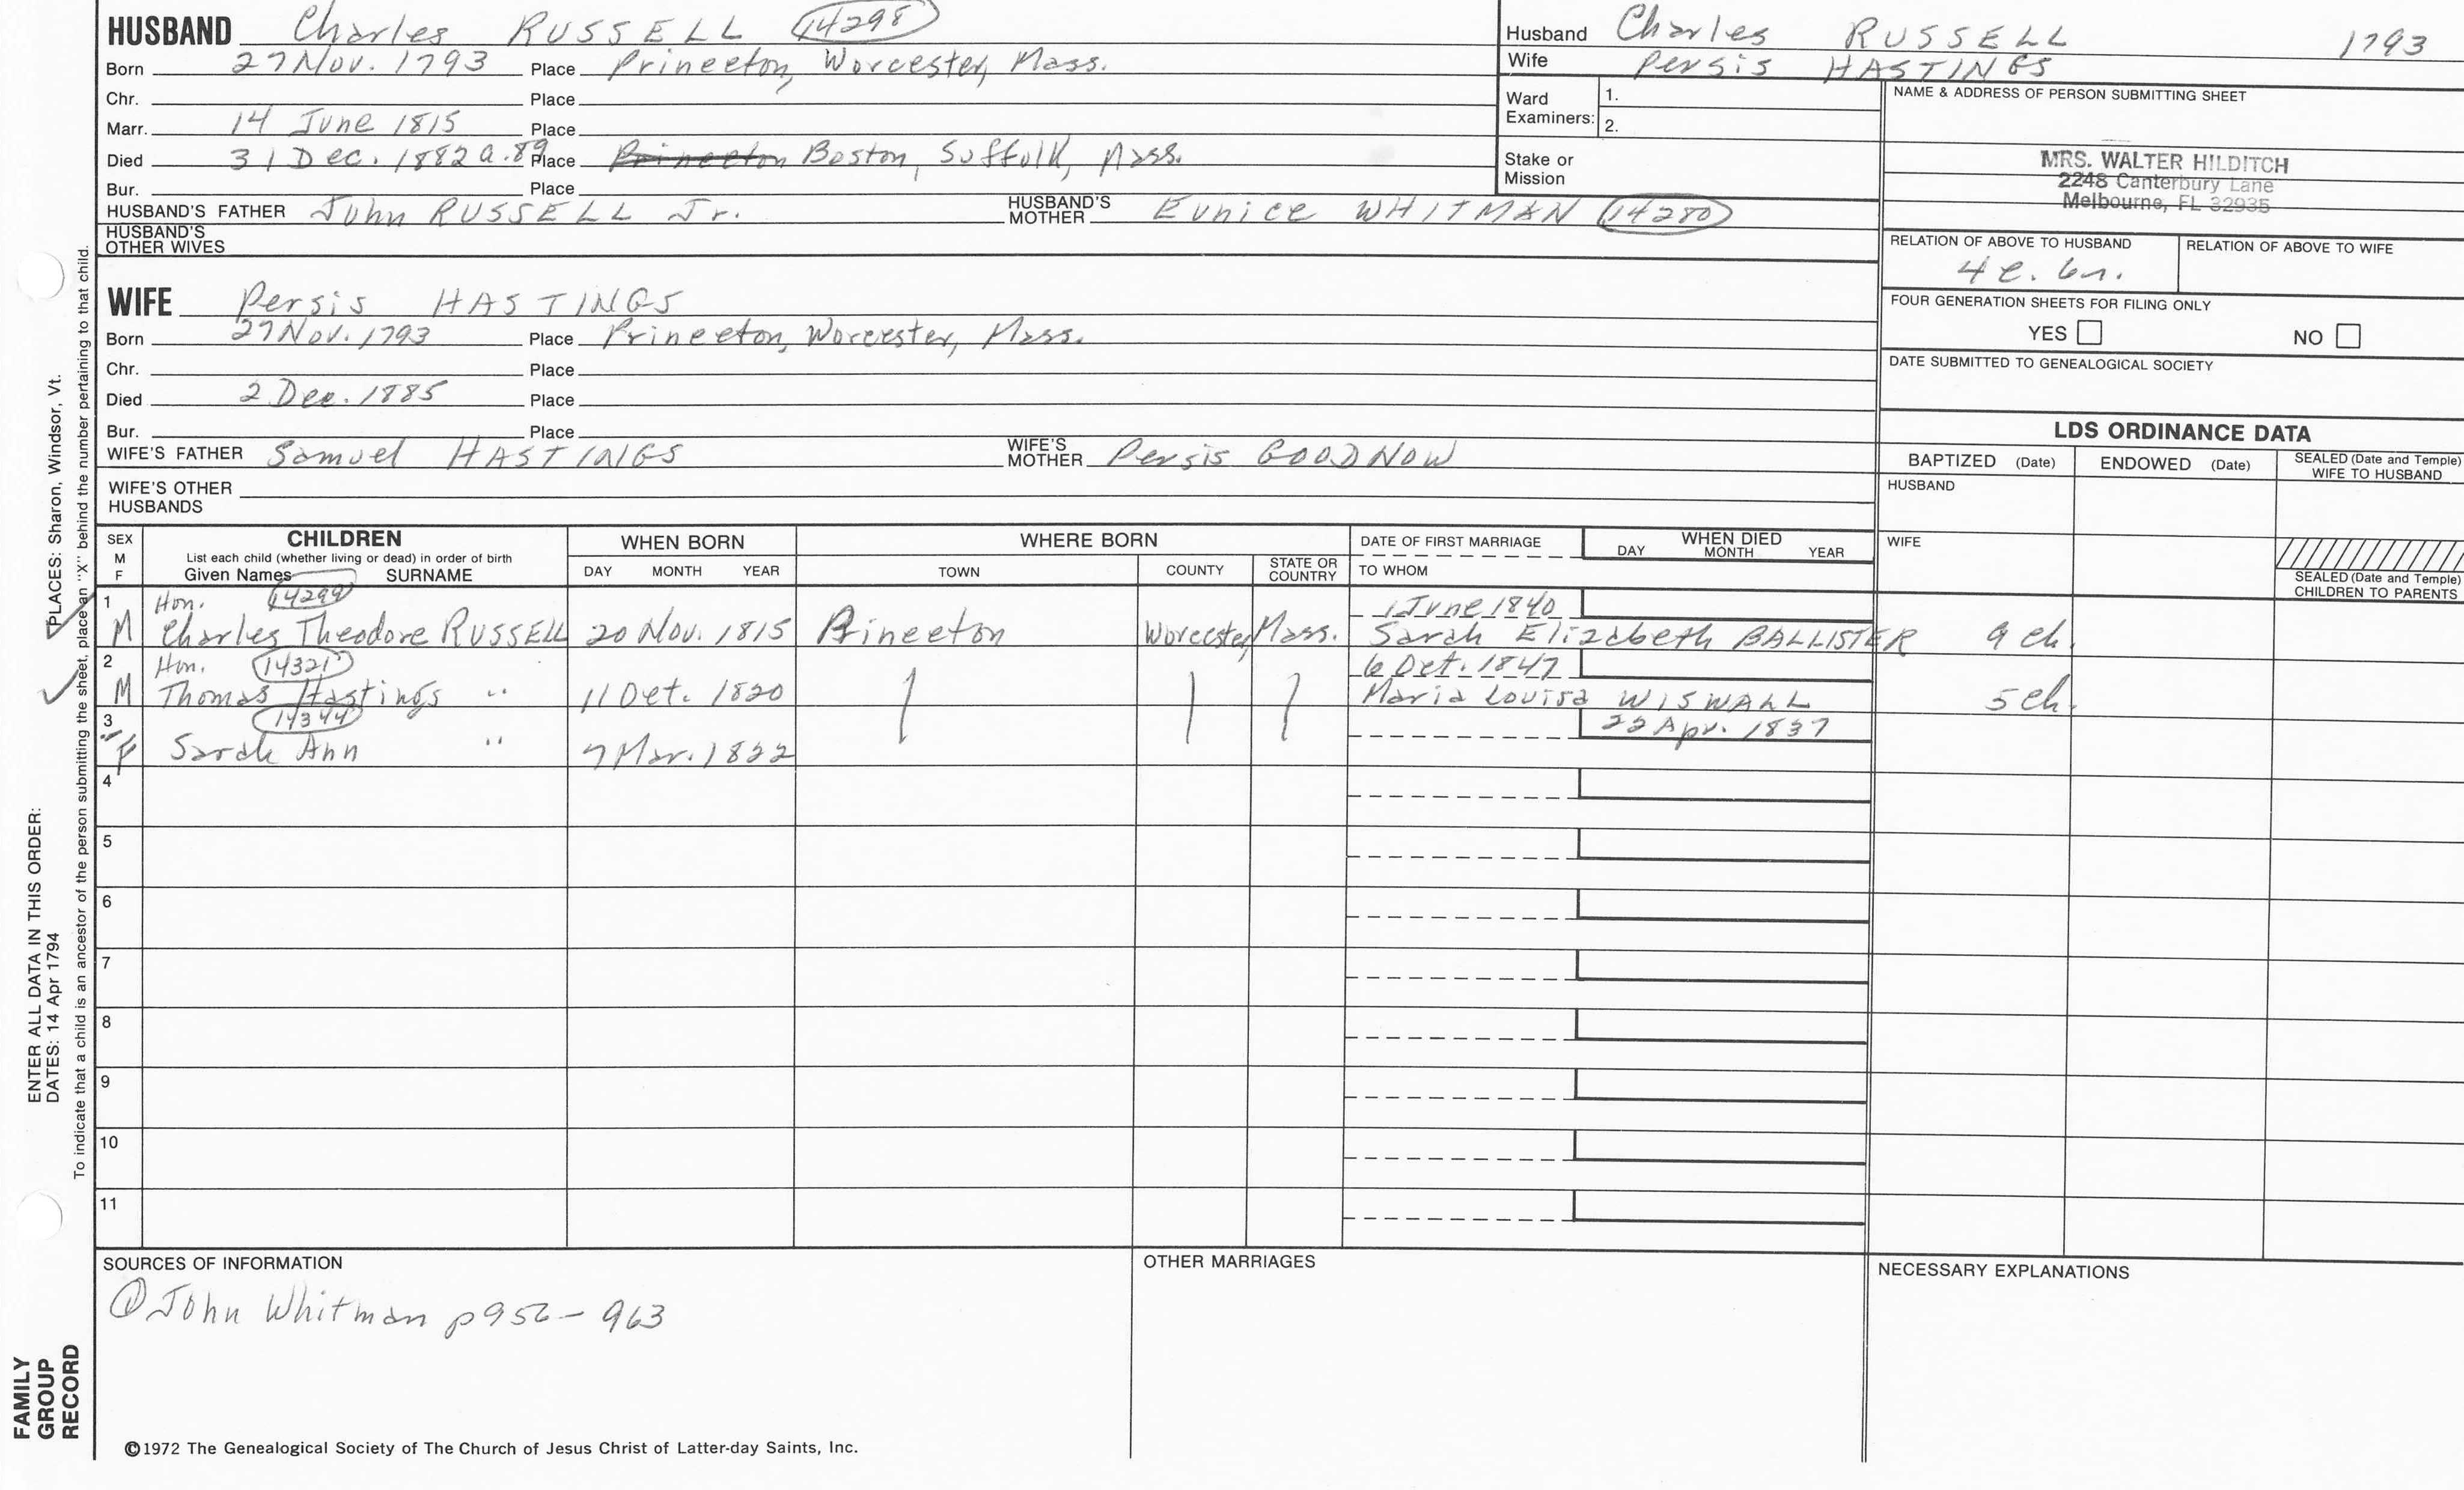 HUSBAND Charles RUSSELL 14298
Born 27 Nov. 1793 Place Princeton, Worcester, Mass.
Chr. Place
Marr. 14 June 1815 Place
Died 31 Dec. 1882 a.89 Place Princeton Boston, Suffolk, Mass.
Bur. Place
HUSBAND'S FATHER John RUSSELL Jr. HUSBAND'S MOTHER Eunice WHITMAN 14280
HUSBAND'S OTHER WIVES
WIFE Persis HASTINGS
Born 27 Nov. 1793 Place Princeton, Worcester, Mass.
Chr. Place
Died 2 Dec. 1885 Place
Bur. Place
WIFE'S FATHER Samuel HASTINGS WIFE'S MOTHER Persis GOODNOW
WIFE'S OTHER HUSBANDS
Husband Charles RUSSELL 1793
Wife Persis HASTINGS
Ward Examiners: 1.
2.
Stake or Mission
NAME & ADDRESS OF PERSON SUBMITTING SHEET
MRS. WALTER HILDITCH
2248 Canterbury Lane
Melbourne, FL 32935
RELATION OF ABOVE TO HUSBAND RELATION OF ABOVE TO WIFE
4 c.
FOUR GENERATION SHEETS FOR FILING ONLY
YES NO
DATE SUBMITTED TO GENEALOGICAL SOCIETY
LDS ORDINANCE DATA
BAPTIZED (Date) ENDOWED (Date) SEALED (Date and Temple) WIFE TO HUSBAND
HUSBAND
WIFE
SEALED (Date and Temple) CHILDREN TO PARENTS
SEX M F CHILDREN WHEN BORN WHERE BORN DATE OF FIRST MARRIAGE WHEN DIED
List each child (whether living or dead) in order of birth
Given Names SURNAME DAY MONTH YEAR TOWN COUNTY STATE OR COUNTRY TO WHOM DAY MONTH YEAR
1 Hon. 14299 1 June 1840
M Charles Theodore RUSSELL 20 Nov. 1815 Princeton Worcester, Mass. Sarah Elizabeth BALLISTER 9 ch.
2 Hon. 14321 6 Oct. 1847
M Thomas Hastings " 11 Oct. 1820 Maria Louisa WISWALL 5 ch.
3 14344 22 Apr. 1837
F Sarah Ann " 7 Mar. 1822
4
5
6
7
8
9
10
11
SOURCES OF INFORMATION OTHER MARRIAGES NECESSARY EXPLANATIONS
① John Whitman p956-963
©1972 The Genealogical Society of The Church of Jesus Christ of Latter-day Saints, Inc.
FAMILY GROUP RECORD
ENTER ALL DATA IN THIS ORDER:
DATES: 14 Apr 1794 PLACES: Sharon, Windsor, Vt.
To indicate that a child is an ancestor of the person submitting the sheet, place an "X" behind the number pertaining to that child.